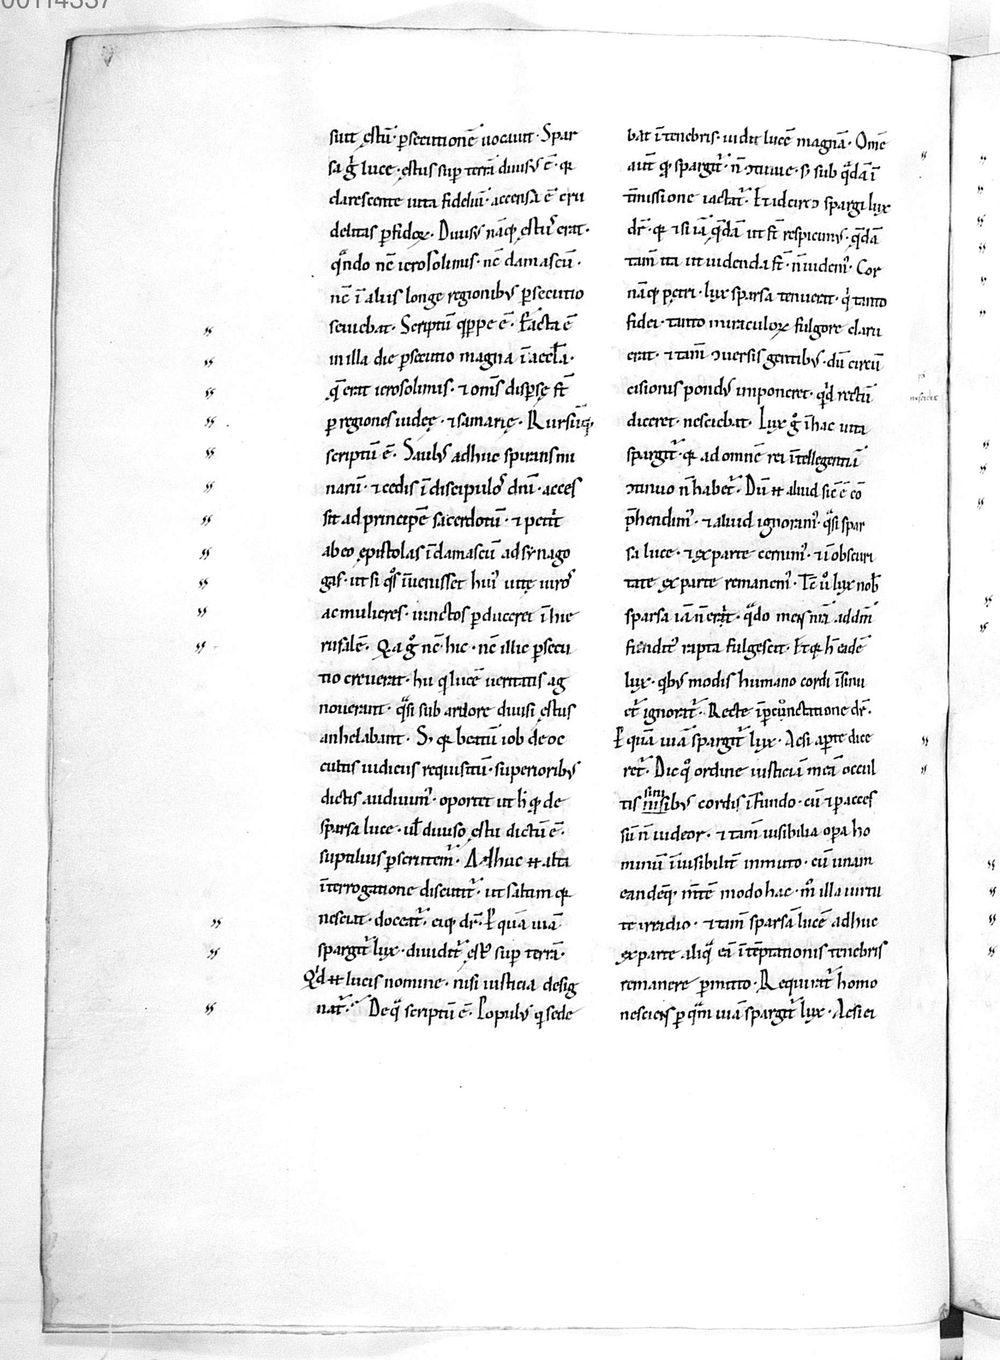 suit ęstū· ꝑsecutionē uocauit· Spar
sa g̊ luce· ęstus sup terrā diuisus ē· qꝛ
clarescente uita fidelium̄· accensa ē cru
delitas ꝑfidoꝝ· Diuisus nāq; ęstus erat·
qn̄do nc̄ ierosolimis· nc̄ damascū·
nc̄ ī aliis longe regionibus ꝑsecutio
seuiebat· Scriptū qppe ē· Facta ē
in illa die ꝑsecutio magna ī ęccl̄a·
q̄ erat ierosolimis· ⁊ om̄s disꝑse sť
ꝑ regiones iudeę· ⁊ samarię· Rursūq;
scriptū ē· Saulus adhuc spirans mi
narū· ⁊ cedis ī discipulos dn̄i· acces
sit ad principē sacerdotū· ⁊ petiit
ab eo epistolas ī damascū ad synago
gas· ut si q̊s īuenisset hui' uitę uiros
ac mulieres· uinctos ꝑduceret ī hie
rusalē· Qa g̊ nc̄ hic· nc̄ illic ꝑsecu
tio creuerat· hii q lucē ueritatis ag
nouerant· q̄si sub ardore diuisi ęstus
anhelabant· S; qꝛ beatū iob de oc
cultis iudiciis requisitū· superioribus
dictis audiuim'· oportet ut h̄ q̄ de
sparsa luce· ul̄ diuiso ęstu dictū ē·
suptilius ꝑscrutem̄· Adhuc ⁊ alta
īterrogatione discutit̄· ut saltam qꝛ
nescit· doceat̄· eiq; dr̄· P quā uiā
spargit̄ lux· diuidit̄ ęst' sup terrā·
Qd ⁊ lucis nomine· nisi iusticia desig
nat̄· De q̄ scriptū ē· Populus q sede
bat ī tenebris· uidit lucē magnā· Om̄e
aut̄ qd spargit̄· n̄ ↄtinue· s; sub q̄dā ī
t̄missione iactat̄· Et idcirco spargi lux
dr̄· qꝛ ⁊ si iā q̄dā ut sť respicimus· q̄dā
tam̄ ita ut uidenda sť· n̄ uidem'· Cor
nāq; petri· lux sparsa tenuerat· q tanto
fidei· tanto miraculoꝝ fulgore claru
erat· ⁊ tam̄ ↄuersis gentibus· dū circū
cisionis pondus imponeret· qd rectū
diceret· nesciebat· Lux g̊ ī hac uita
spargit̄· qꝛ ad omnē rei ītellegentiā
ↄtinuo n̄ habet̄· Dū ⁊ aliud sic̄ ē cō
p̄hendim'· ⁊ aliud ignoram'· q̄si spar
sa luce· ⁊ ex parte cernim'· ⁊ ī obscuri
tate ex parte remanem'· Tc̄ ů lux nob̄
sparsa iā n̄ erit· q̄do mens nr̄a ad dm̄
funditus rapta fulgescit· Et qꝛ h̄ eadē
lux· qbus modis humano cordi īsinu
et̄ ignorat̄· Recte ī ꝑcunctatione dr̄·
P quā uiā spargit̄ lux· Ac si aꝑte dice
ret̄· Dic q̊ ordine iusticiā meā occul
tis sinibus cordis īfundo· cū ⁊ ꝑ acces
sū n̄ uideor· ⁊ tam̄ uisibilia oꝑa ho
minū īuisibilit̄ inmuto· cū unam
eandēq; mt̄ē modo hac· m̄ illa uirtu
te irradio· ⁊ tam̄ sparsā lucē adhuc
ex parte aliq̄ eā ī tēptationis tenebris
remanere ꝑmitto· Requirat̄ homo
nesciens ꝑ qm̄ uiā spargit̄ lux· Ac si ei